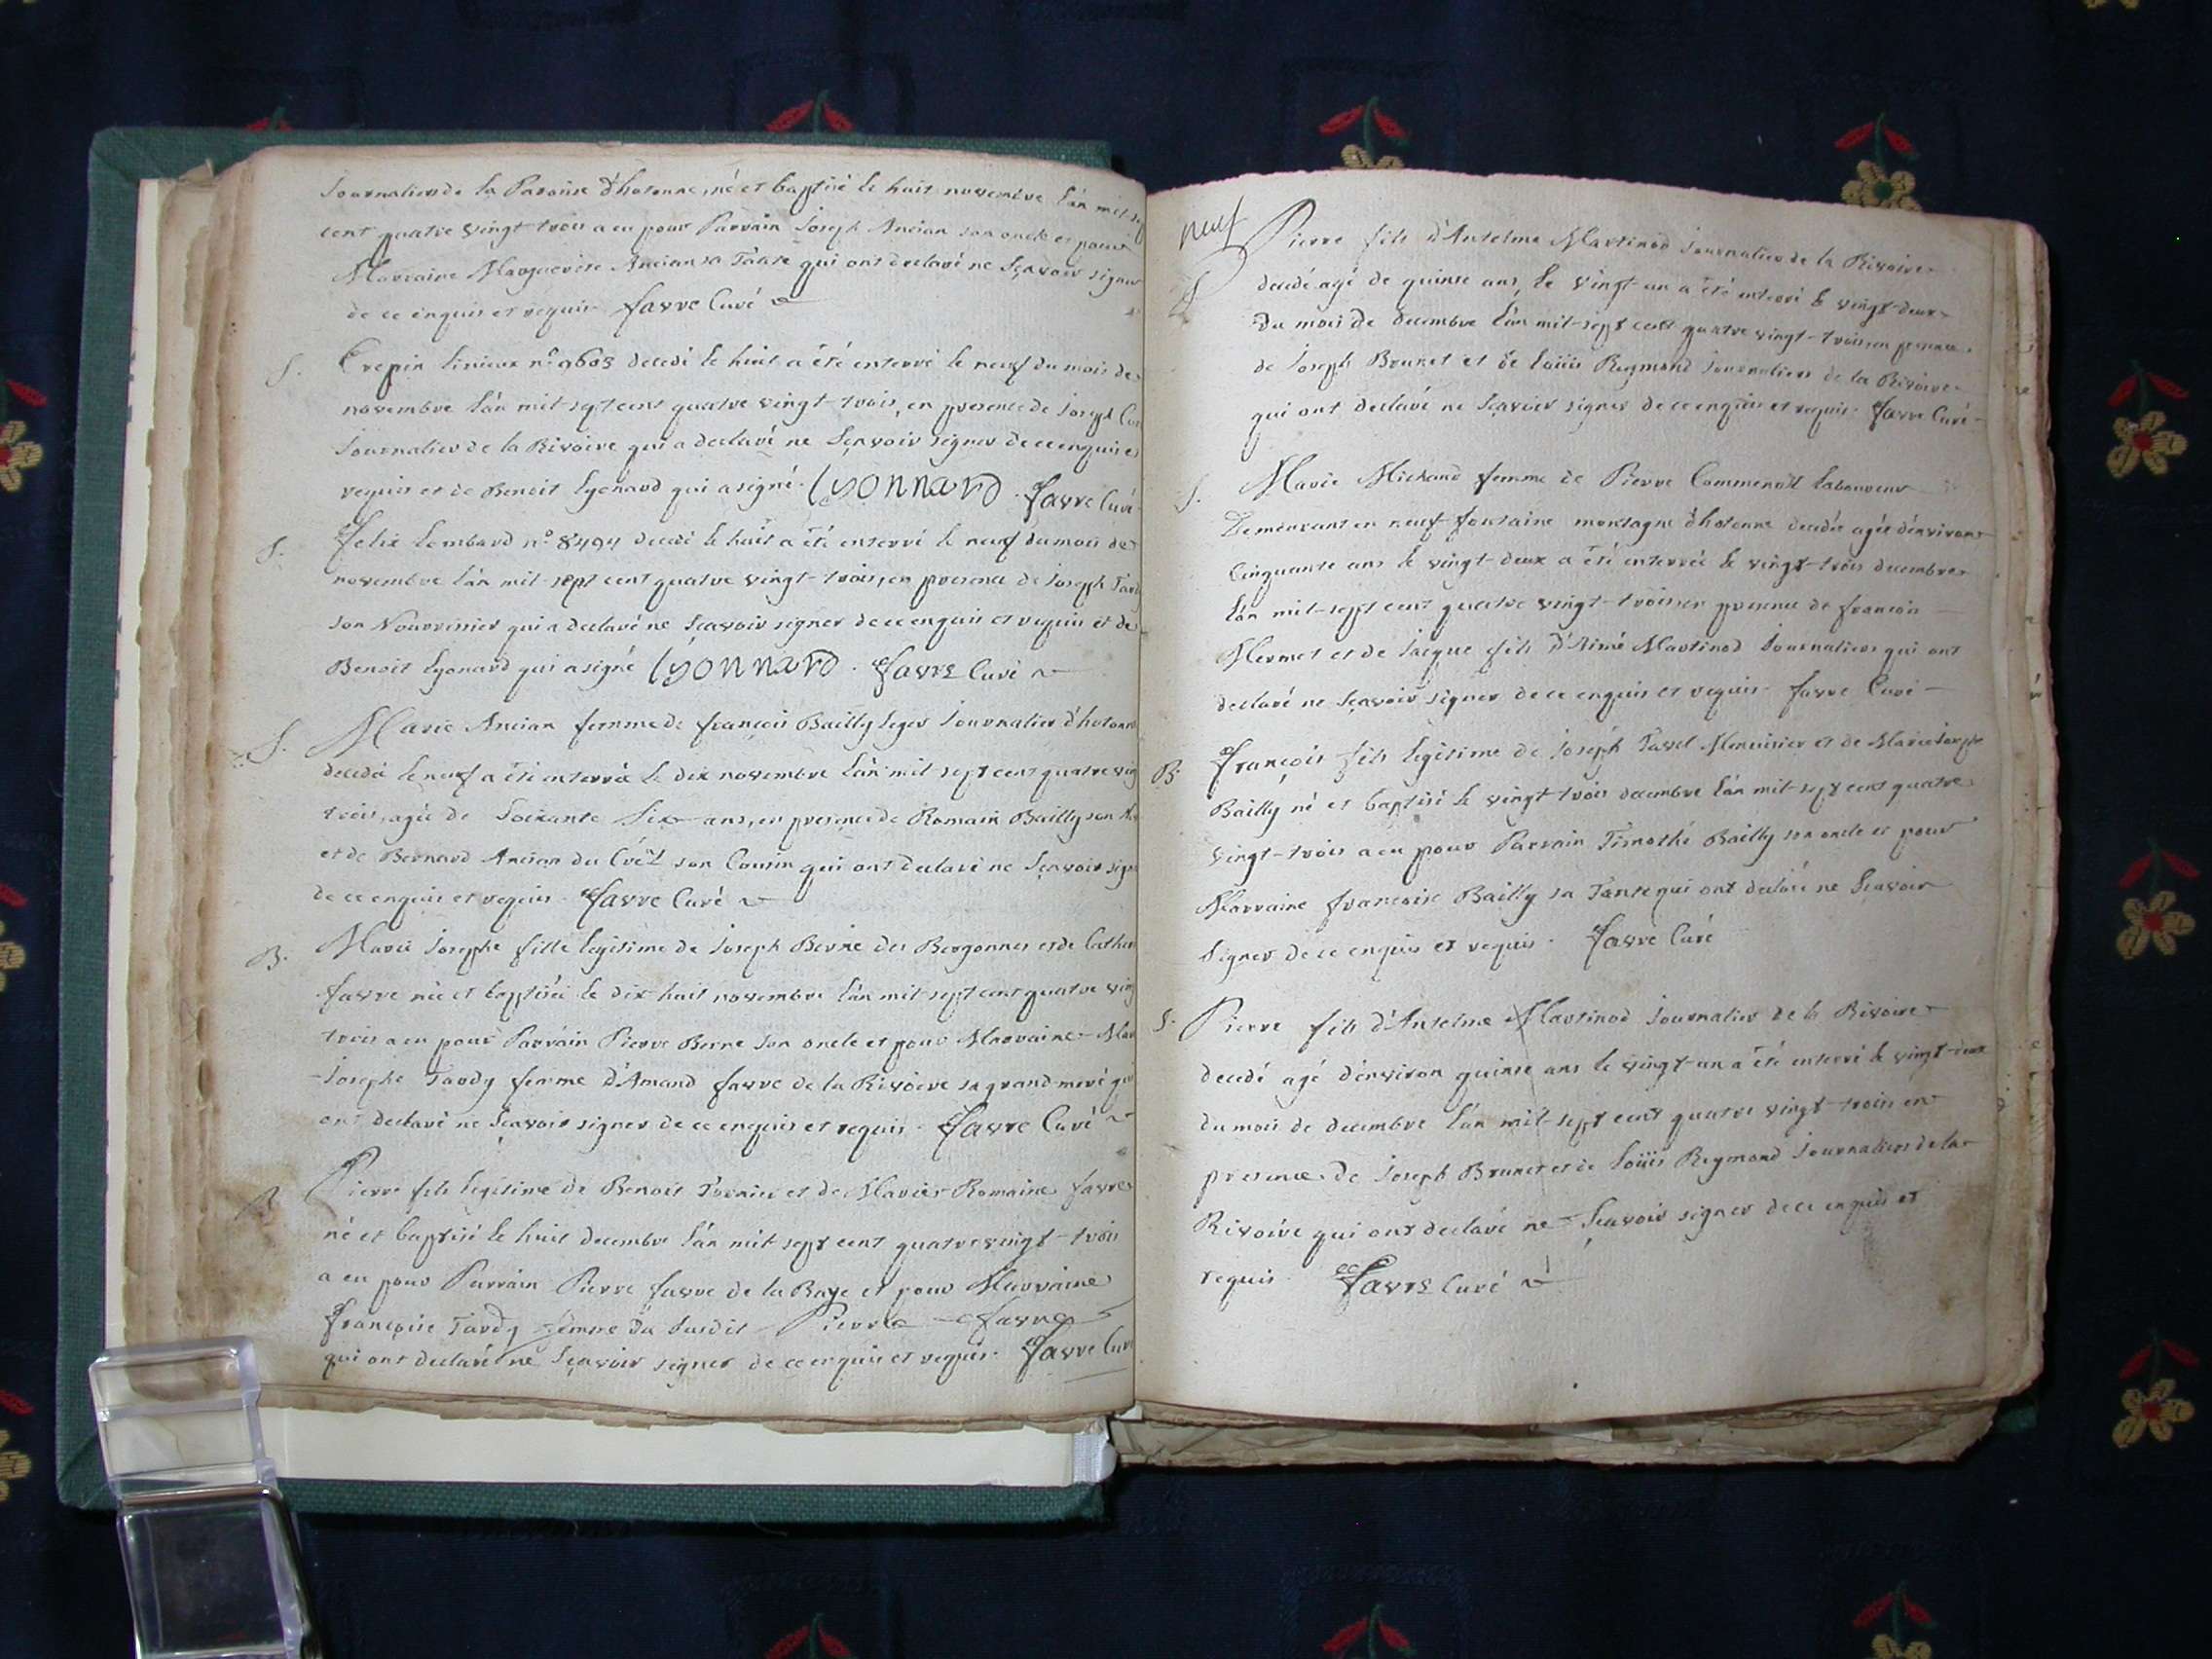 Journaliers de la Paroisse d'hotonne, né et baptisé le huit novembre l'an mil-sept
cent quatre vingt-trois a eu pour Parrain Joseph Ancian son oncle et pour
Marraine Marguerite Ancian sa Tante qui ont declaré ne Sçavoir signer
de ce enquis et requis. favre Curé
S. Crepin n.° 9603 decedé le huit a été enterré le neuf du mois de
novembre l'an mil-sept cent quatre vingt-trois, en presence de Joseph
Journalier de la Rivoire qui a declaré ne Sçavoir signer de ce enquis et
requis et de Benoit Lyonard qui a signé. Lyonnard. favre Curé
S. Felix Lombard n.° 8494 decedé le huit a été enterré le neuf du mois de
novembre l'an mil-sept cent quatre vingt-trois, en presence de Joseph
son Nourrissier qui a declaré ne Sçavoir signer de ce enquis et requis et de
Benoit Lyonard qui a signé Lyonnard. favre Curé
S. Marie Ancian femme de françois Bailly Leger Journalier d'hotonne
decedée le neuf a été enterrée le dix novembre l'an mil-sept cent quatre vingt
trois, agée de Soixante Six ans, en presence de Romain Bailly son
et de Bernard Ancian du Crêt son Cousin qui ont declaré ne Sçavoir signer
de ce enquis et requis. favre Curé
B. Marie Josephe fille legitime de Joseph Berne des Bergonnes et de
favre née et baptisée le dix huit novembre l'an mil-sept cent quatre vingt
trois a eu pour Parrain Pierre Berne son oncle et pour Marraine
Josephe Tardy femme d'Amand favre de la Rivoire sa grand-mere qui
ont declaré ne Sçavoir signer de ce enquis et requis. favre Curé
B. Pierre fils legitime de Benoit Tornier et de Marie Romaine favre
né et baptisé le huit decembre l'an mil-sept cent quatre vingt-trois
a eu pour Parrain Pierre favre de la Raye et pour Marraine
françoise Tardy femme du susdit Pierre favre
qui ont declaré ne Sçavoir signer de ce enquis et requis. favre Curé
neuf
Pierre fils d'Antelme Martinod Journalier de la Rivoire
decedé agé de quinse ans, le vingt-un a été enterré le vingt-deux
du mois de decembre l'an mil-sept cent quatre vingt-trois en presence
de Joseph Brunet et de Loüis Reymond Journaliers de la Rivoire
qui ont declaré ne Sçavoir signer de ce enquis et requis. favre Curé
S. Marie Michaud femme de Pierre laboureur
Demeurant en neuf-fontaine montagne d'hotonne decedée agée d'environ
Cinquante ans le vingt-deux a été enterrée le vingt-trois decembre
l'an mil-sept cent quatre vingt-trois en presence de françois
Mermet et de Jacque fils d'Aimé Martinod Journaliers qui ont
declaré ne Sçavoir signer de ce enquis et requis. favre Curé
B. françois fils legitime de Joseph Tavel Menuisier et de Marie Josephe
Bailly né et baptisé le vingt-trois decembre l'an mil-sept cent quatre
vingt-trois a eu pour Parrain Timothé Bailly son oncle et pour
Marraine françoise Bailly sa Tante qui ont declaré ne Sçavoir
Signer de ce enquis et requis. favre Curé
S. Pierre fils d'Antelme Martinod Journalier de la Rivoire
decedé agé d'environ quinse ans le vingt-un a été enterré le vingt-deux
du mois de decembre l'an mil-sept cent quatre vingt-trois en
presence de Joseph Brunet et de Loüis Reymond Journaliers de la
Rivoire qui ont declaré ne Sçavoir signer de ce enquis et
requis. favre Curé